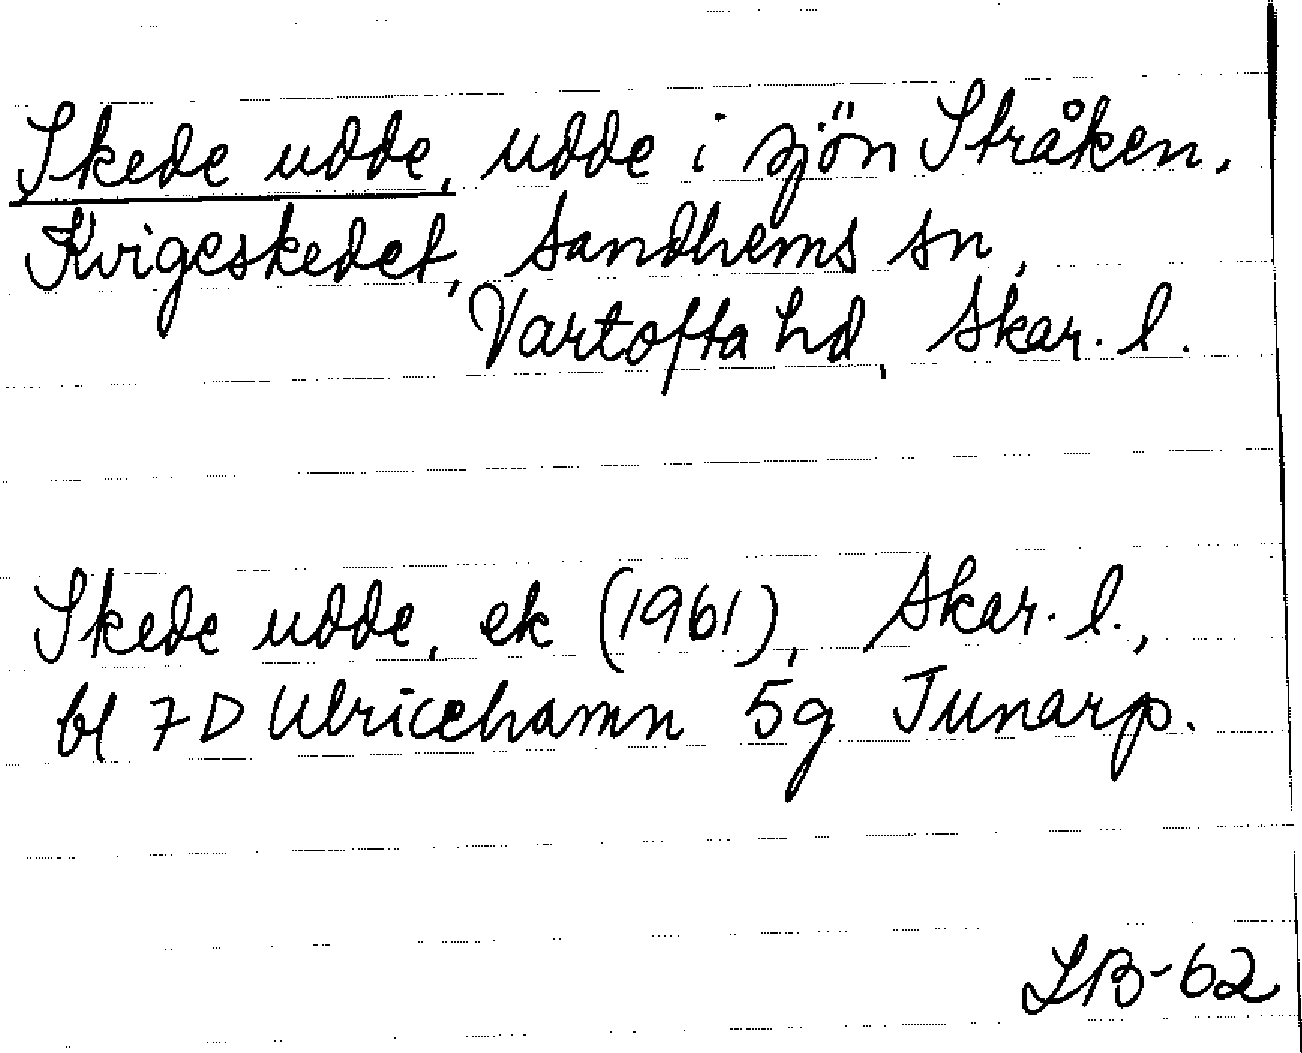 Skede udde, udde i sjön Stråken.
Kvigeskedet, Sandhems sn,
Vartofta hd, Skar. l.
Skede udde, ek (1961), Skar. l.,
bl 7D Ulricehamn 5g Junarp.
LB-62